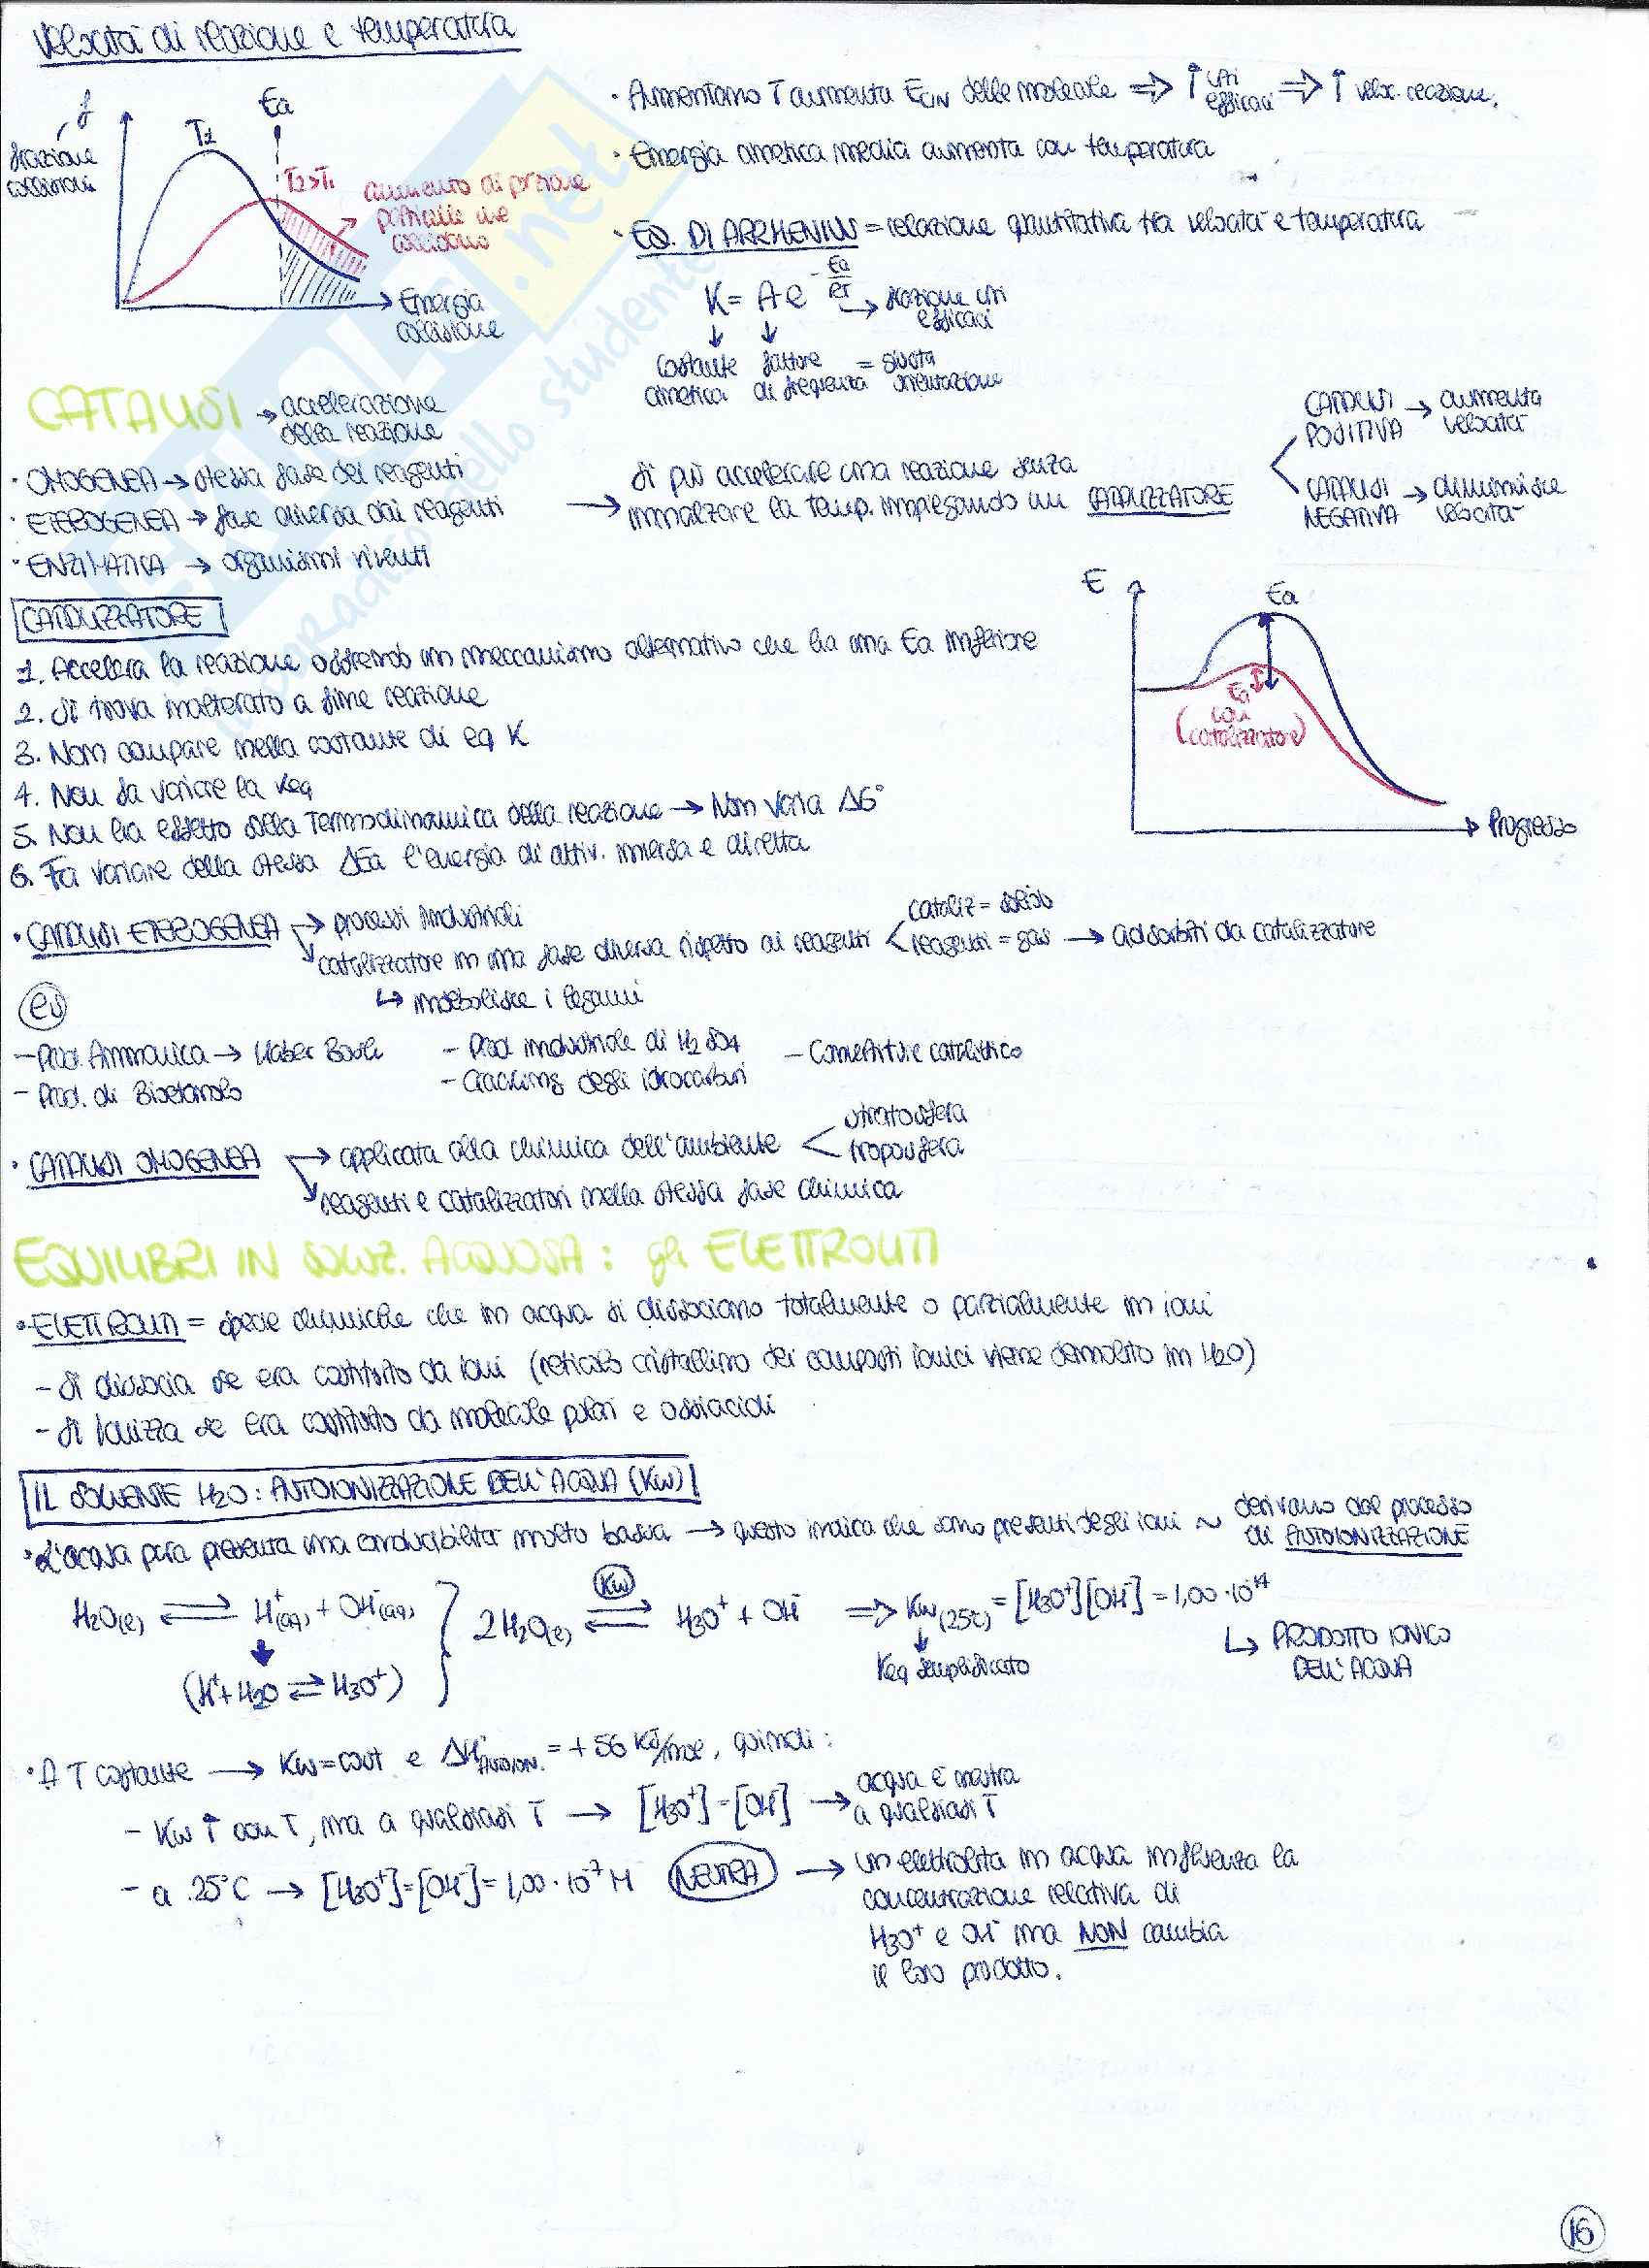 Velocità di reazione e temperatura
f
frazione
collisioni
T1
Ea
T2>T1
aumento di frazione
particelle che
collidono
Energia
collisione
· Aumentano T aumenta ECIN delle molecole ⇒ ↑ urti efficaci ⇒ ↑ veloc. reazione.
· Energia cinetica media aumenta con temperatura
· EQ. DI ARRHENIUS = relazione quantitativa tra velocità e temperatura
K = A e^-Ea/RT → frazione urti efficaci
↓ ↓
costante cinetica
fattore di frequenza = giusta orientazione
CATALISI → accelerazione
della reazione
· OMOGENEA → stessa fase dei reagenti
· ETEROGENEA → fase diversa dai reagenti
· ENZIMATICA → organismi viventi
→ Si può accelerare una reazione senza
innalzare la temp. impiegando un CATALIZZATORE
CATALISI POSITIVA → aumenta velocità
CATALISI NEGATIVA → diminuisce velocità
CATALIZZATORE
1. Accelera la reazione offrendo un meccanismo alternativo che ha una Ea inferiore
2. Si trova inalterato a fine reazione
3. Non compare nella costante di eq K
4. Non fa variare la Keq
5. Non ha effetto sulla Termodinamica della reazione → Non varia ΔG°
6. Fa variare della stessa ΔEa l'energia di attiv. inversa e diretta
E
Ea
Ea
(con
catalizzatore)
Progresso
· CATALISI ETEROGENEA → processi industriali
catalizzatore in una fase diversa rispetto ai reagenti
cataliz = solido
reagenti = gas → adsorbiti da catalizzatore
↳ indebolisce i legami
es
- Prod. Ammoniaca → Haber Bosch
- Prod industriale di H2SO4
- Convertitore catalitico
- Prod. di Bioetanolo
- Cracking degli idrocarburi
· CATALISI OMOGENEA → applicata alla chimica dell'ambiente
stratosfera
troposfera
reagenti e catalizzatori nella stessa fase chimica
EQUILIBRI IN SOLUZ. ACQUOSA: gli ELETTROLITI
· ELETTROLITI = specie chimiche che in acqua si dissociano totalmente o parzialmente in ioni
- Si dissocia se era costituito da ioni (reticolo cristallino dei composti ionici viene demolito in H2O)
- Si ionizza se era costituito da molecole polari e ossiacidi
IL SOLVENTE H2O: AUTOIONIZZAZIONE DELL'ACQUA (KW)
· L'acqua pura presenta una conducibilità molto bassa → questo indica che sono presenti degli ioni ~ derivano dal processo
di AUTOIONIZZAZIONE
H2O(l) ⇌ H+(aq) + OH-(aq)
(H+ + H2O ⇌ H3O+)
Kw
2H2O(l) ⇌ H3O+ + OH- ⇒ Kw(25°C) = [H3O+][OH-] = 1,00·10^-14
↓
Keq semplificato
↳ PRODOTTO IONICO
DELL'ACQUA
· A T costante → Kw=cost e ΔH°AUTOION. = +56 KJ/mol, quindi:
- Kw ↑ con T, ma a qualsiasi T → [H3O+]=[OH-] → acqua è neutra
a qualsiasi T
- a 25°C → [H3O+]=[OH-]=1,00·10^-7 M NEUTRA → un elettrolita in acqua influenza la
concentrazione relativa di
H3O+ e OH- ma NON cambia
il loro prodotto.
16